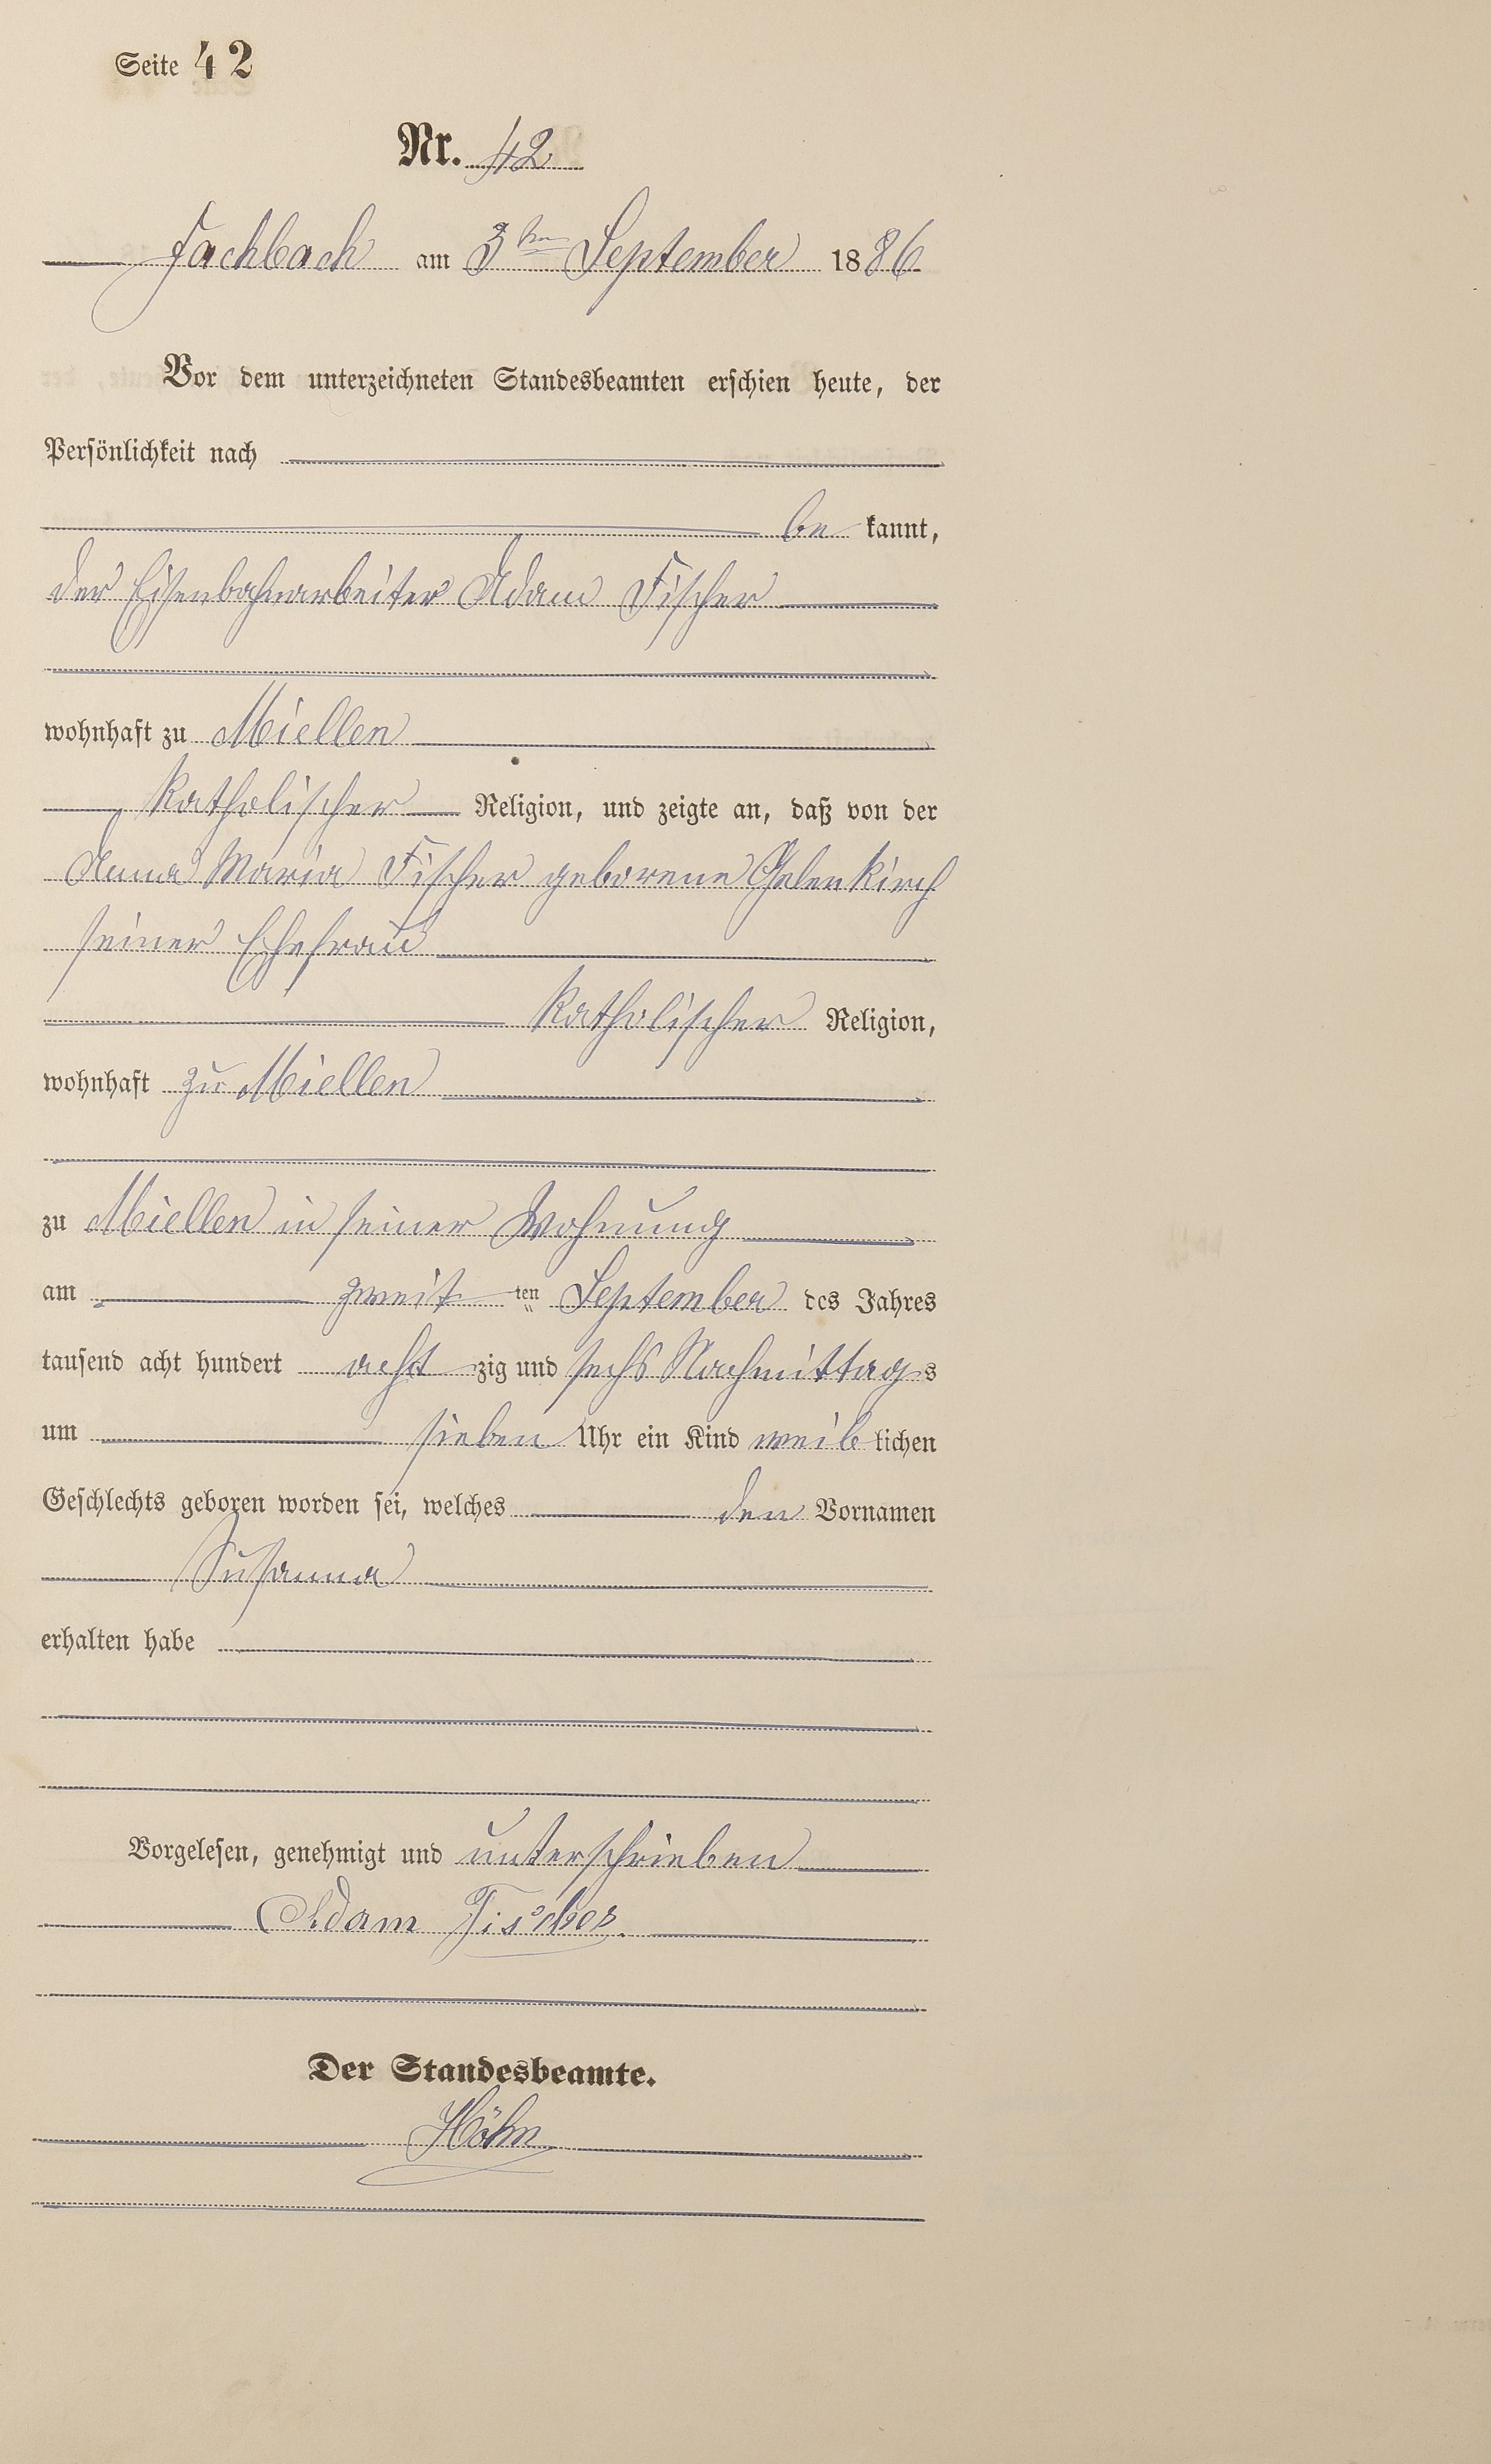 Seite 42
Nr. 42
Fachbach am 3ten September 1886
Vor dem unterzeichneten Standesbeamten erschien heute, der
Persönlichkeit nach
be kannt,
der Eisenbahnarbeiter Adam Fischer
wohnhaft zu Miellen
katholischer Religion, und zeigte an, daß von der
Anna Maria Fischer geborene Gelenkirch
seiner Ehefrau
katholischer Religion,
wohnhaft zu Miellen
zu Miellen in seiner Wohnung
am zweit ten September des Jahres
tausend acht hundert acht zig und sechs Nachmittags
um sieben Uhr ein Kind weib lichen
Geschlechts geboren worden sei, welches den Vornamen
Susanna
erhalten habe
Vorgelesen, genehmigt und unterschrieben
Adam Fischer.
Der Standesbeamte.
Höhn